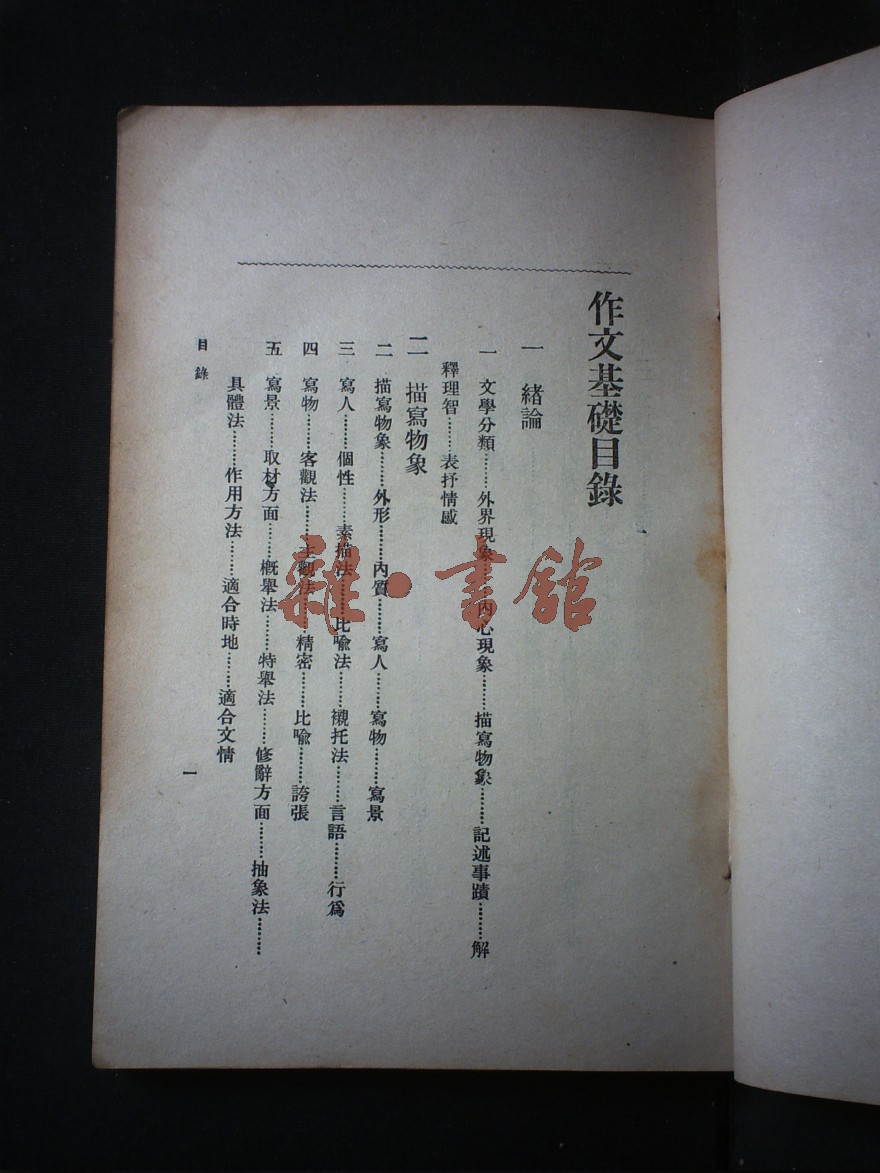 作文基礎目錄
一 緒論
一 文學分類……外界現象……內心現象……描寫物象……記述事蹟……解
釋理智……表抒情感
二 描寫物象
二 描寫物象……外形……內質……寫人……寫物……寫景
三 寫人……個性……素描法……比喻法……襯托法……言語……行爲
四 寫物……客觀法……主觀法……精密……比喻……誇張
五 寫景……取材方面……概舉法……特舉法……修辭方面……抽象法……
具體法……作用方法……適合時地……適合文情
目錄
一
雜·書館